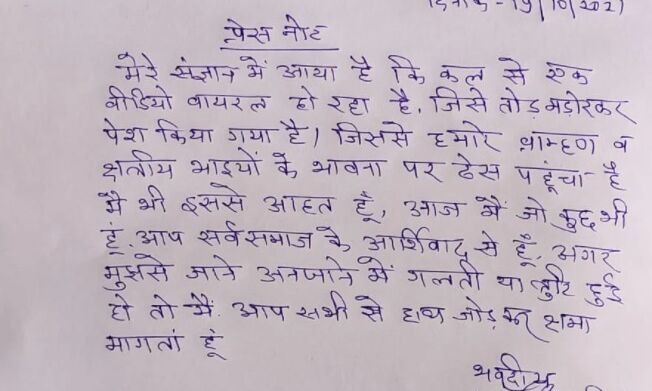 दिनांक - 19/10/2021
प्रेस नोट
मेरे संज्ञान में आया है कि कल से एक
वीडियो वायरल हो रहा है, जिसे तोड़ मड़ोरकर
पेश किया गया है। जिससे हमारे ब्राम्हण व
क्षत्रीय भाइयों के भावना पर ठेस पहूंचा है
मै भी इससे आहत हूँ, आज मैं जो कुछ भी
हूं, आप सर्वसमाज के आर्शिवाद से हूँ, अगर
मुझसे जाने अनजाने में गलती या त्रुटि हुई
हो तो मैं. आप सभी से हाथ जोड़ कर क्षमा
मागतां हूं
भवदीय